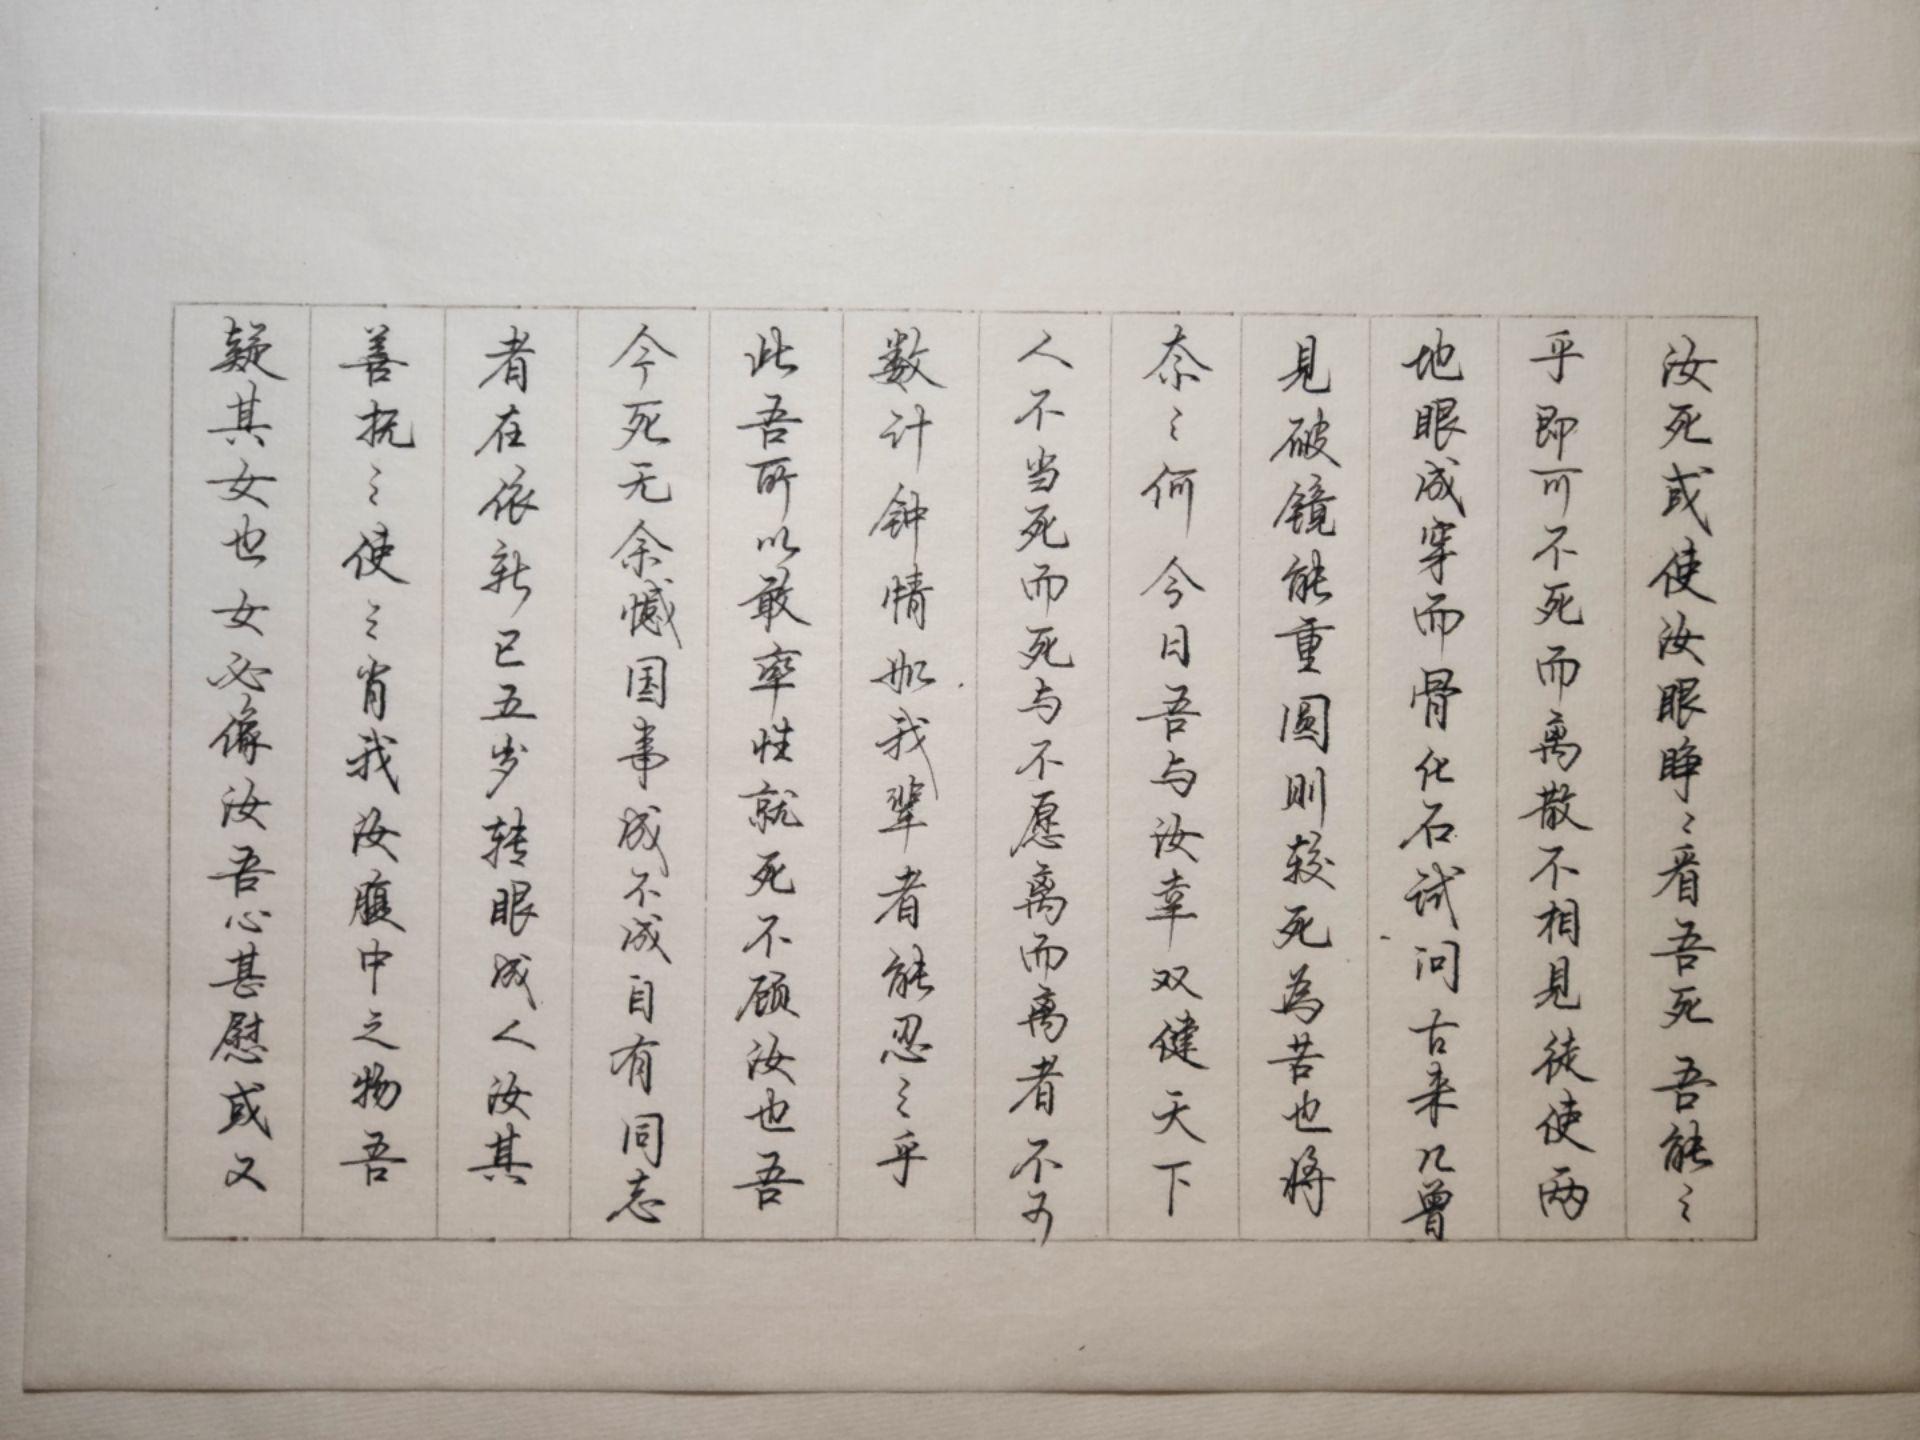 汝死或使汝眼睁〻看吾死吾能〻
乎即可不死而离散不相见徒使两
地眼成穿而骨化石试问古来几曾
見破镜能重圆则较死為苦也将
奈〻何今日吾与汝幸双健天下
人不当死而死与不愿离而离者不可
数计钟情如我辈者能忍〻乎
此吾所以敢率性就死不顾汝也吾
今死无余憾国事成不成自有同志
者在依新已五岁转眼成人汝其
善抚〻使〻肖我汝腹中之物吾
疑其女也女必像汝吾心甚慰或又